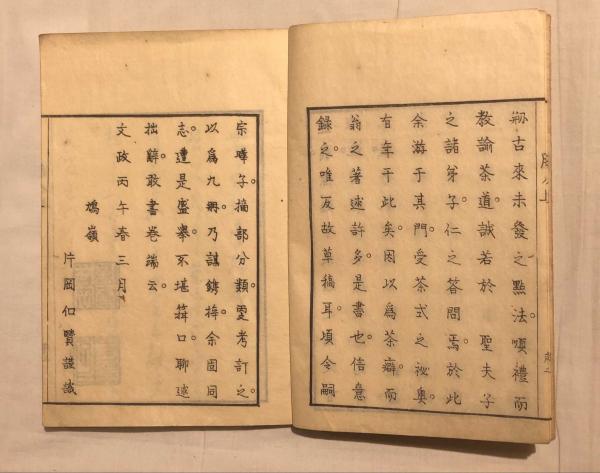 剏古來未發之點法。頌禮而
教諭茶道。誠若於　聖夫子
之諸弟子。仁之答問焉。於此
余游于其門。受茶式之祕奧。
有年于此矣。因以爲茶癖。而
翁之著述許多。是書也。倍意
錄之。唯反故草稿耳。頃令嗣
宗曄子。搞部分類。更考訂之。
以爲九冊。乃謀鐫梓。余固同
志。遭是盛擧。不堪箝口。聊述
拙辭。敢書卷端云。
文政丙午春三月
鳩嶺
片岡仁賢謹識